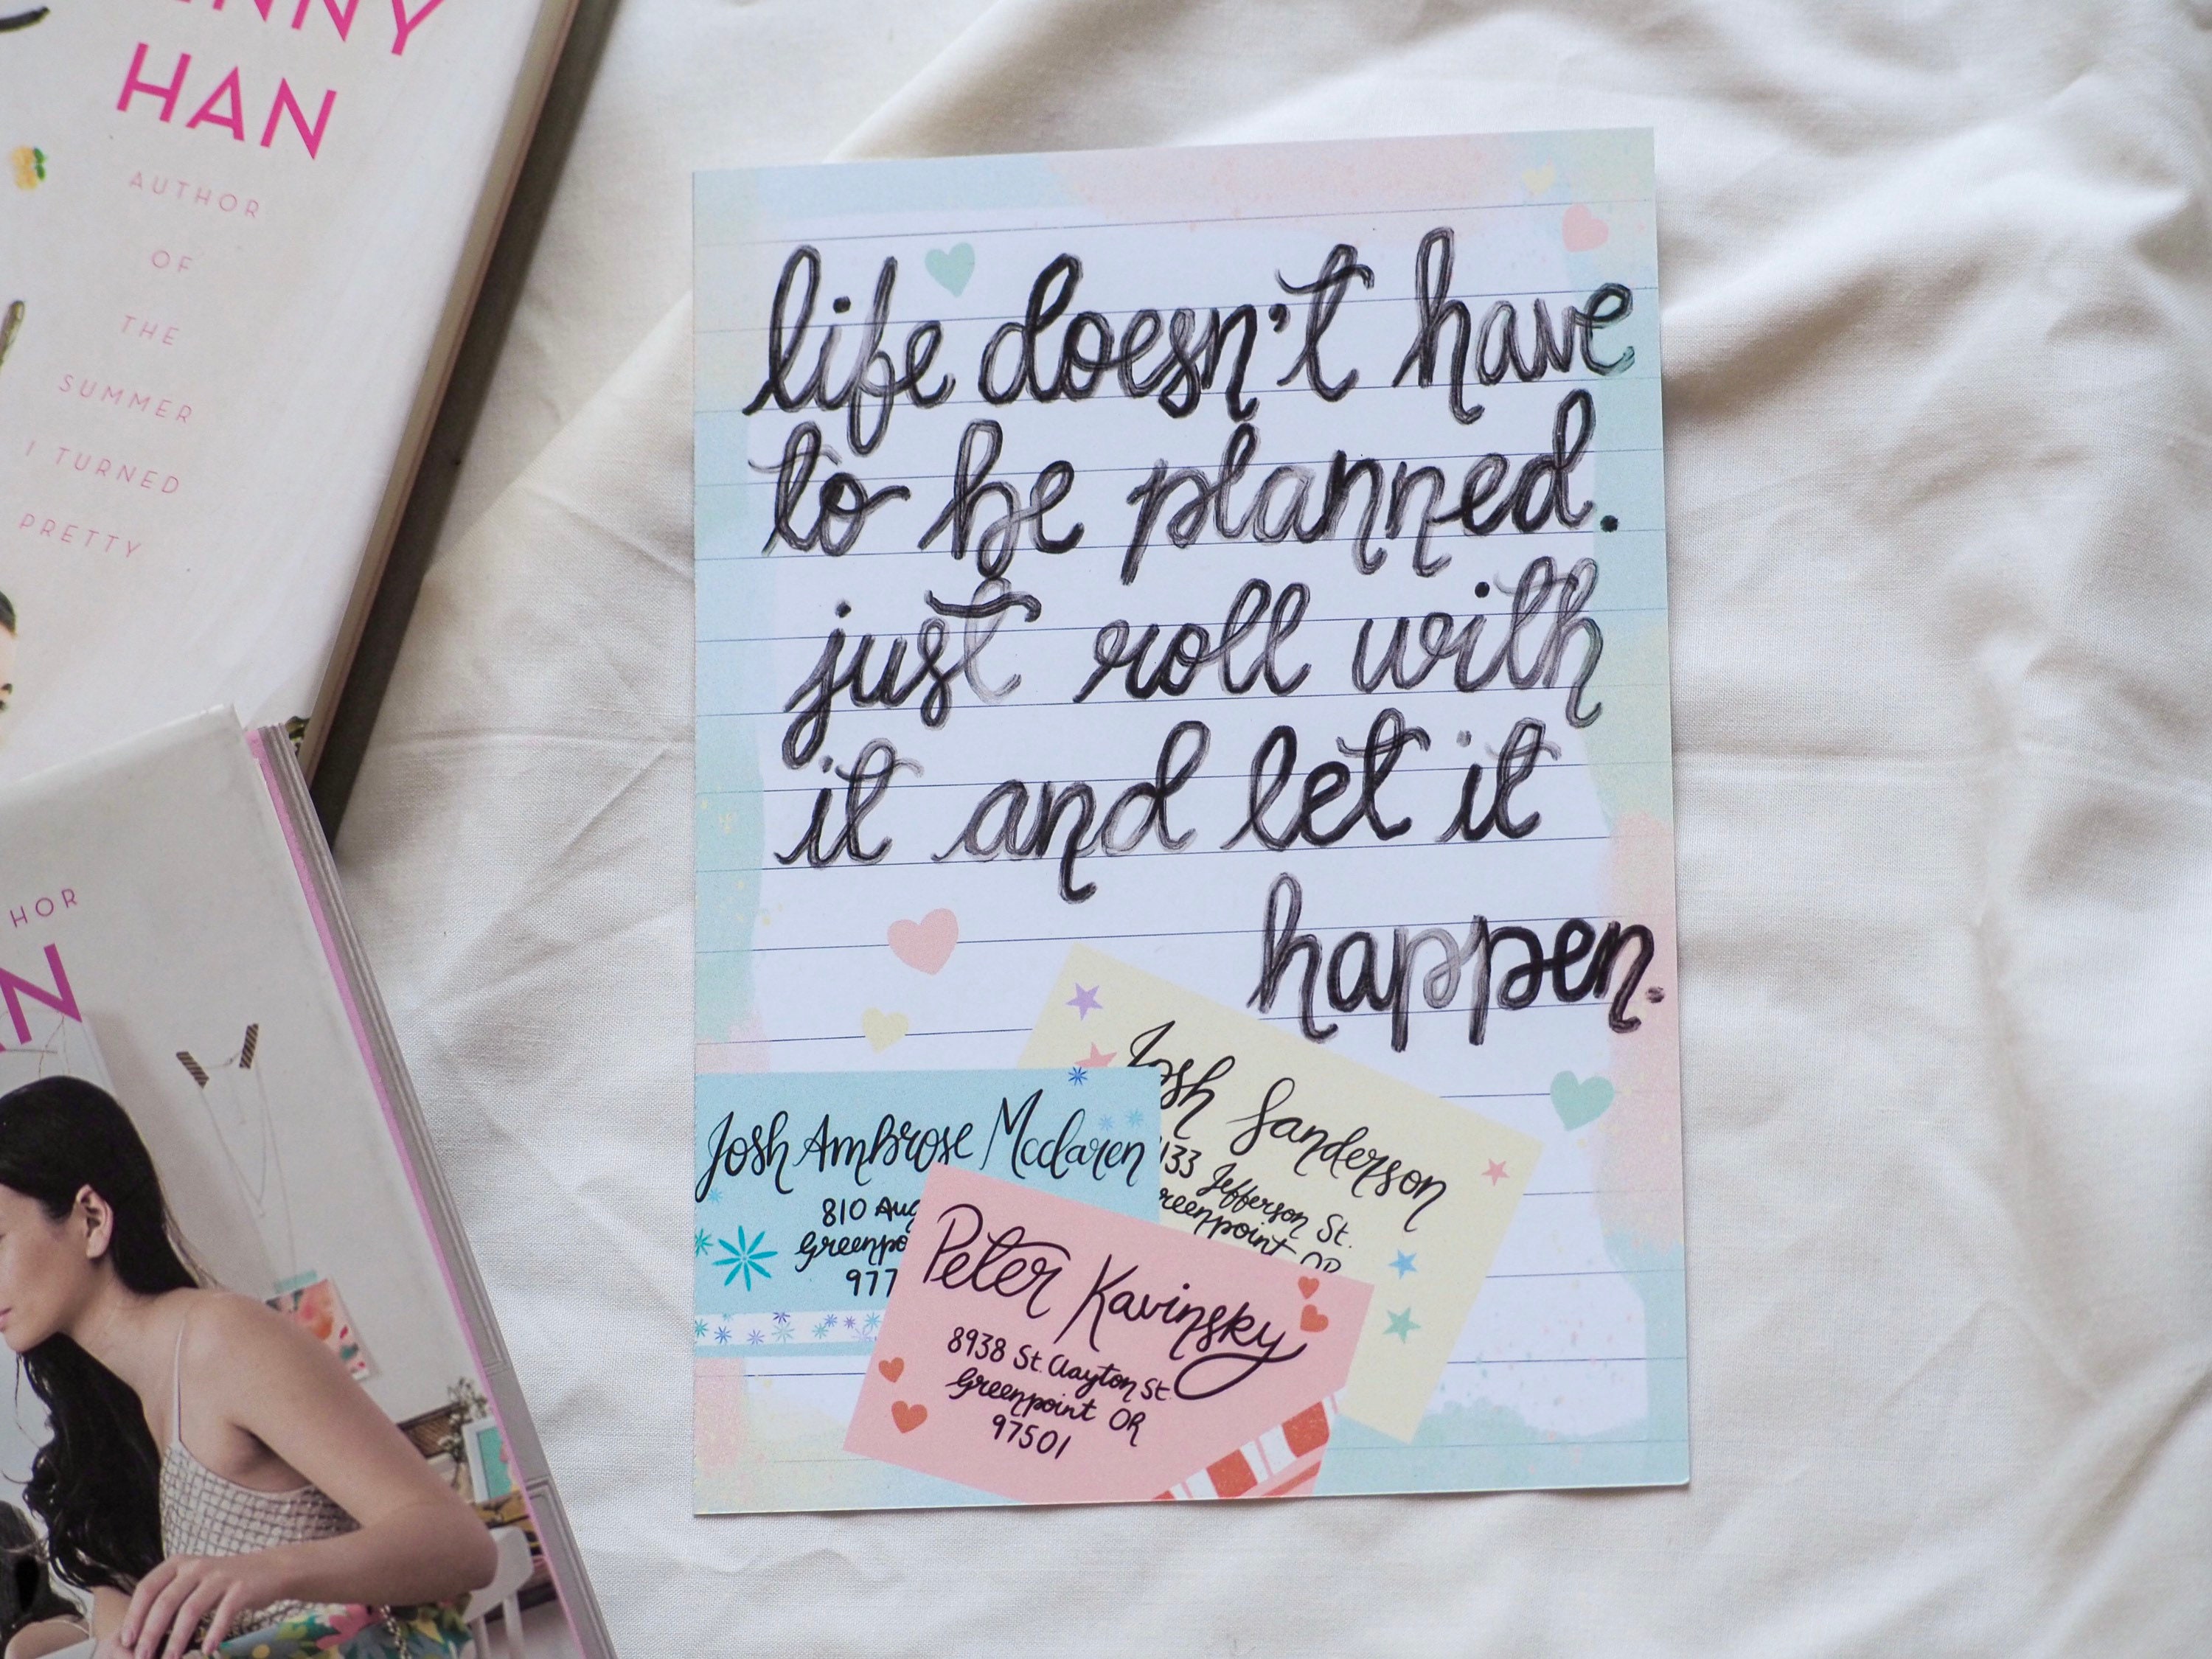 HAN
AUTHOR
OF
THE
SUMMER
I TURNED
PRETTY
life doesn't have
to be planned.
just roll with
it and let it
happen.
Josh Sanderson
133 Jefferson St.
reenpoint OR
Josh Ambrose Mcclaren
810 Aug
Greenpo
977
Peter Kavinsky
8938 St. Clayton St.
Greenpoint OR
97501
HOR
N